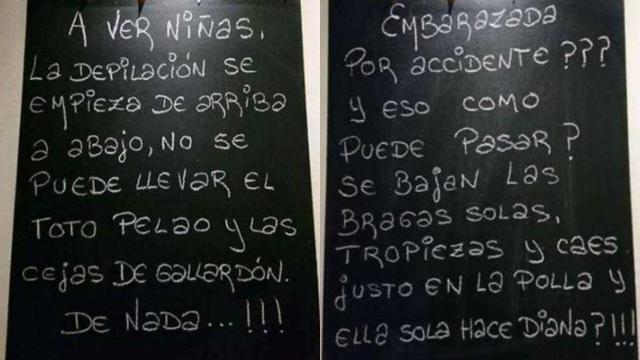 A VER NIÑAS,
LA DEPILACIÓN SE
EMPIEZA DE ARRIBA
A ABAJO, NO SE
PUEDE LLEVAR EL
TOTO PELAO Y LAS
CEJAS DE GALLARDÓN.
DE NADA...!!!
EMBARAZADA
POR ACCIDENTE???
Y ESO COMO
PUEDE PASAR?
SE BAJAN LAS
BRAGAS SOLAS,
TROPIEZAS Y CAES
JUSTO EN LA POLLA Y
ELLA SOLA HACE DIANA?!!!